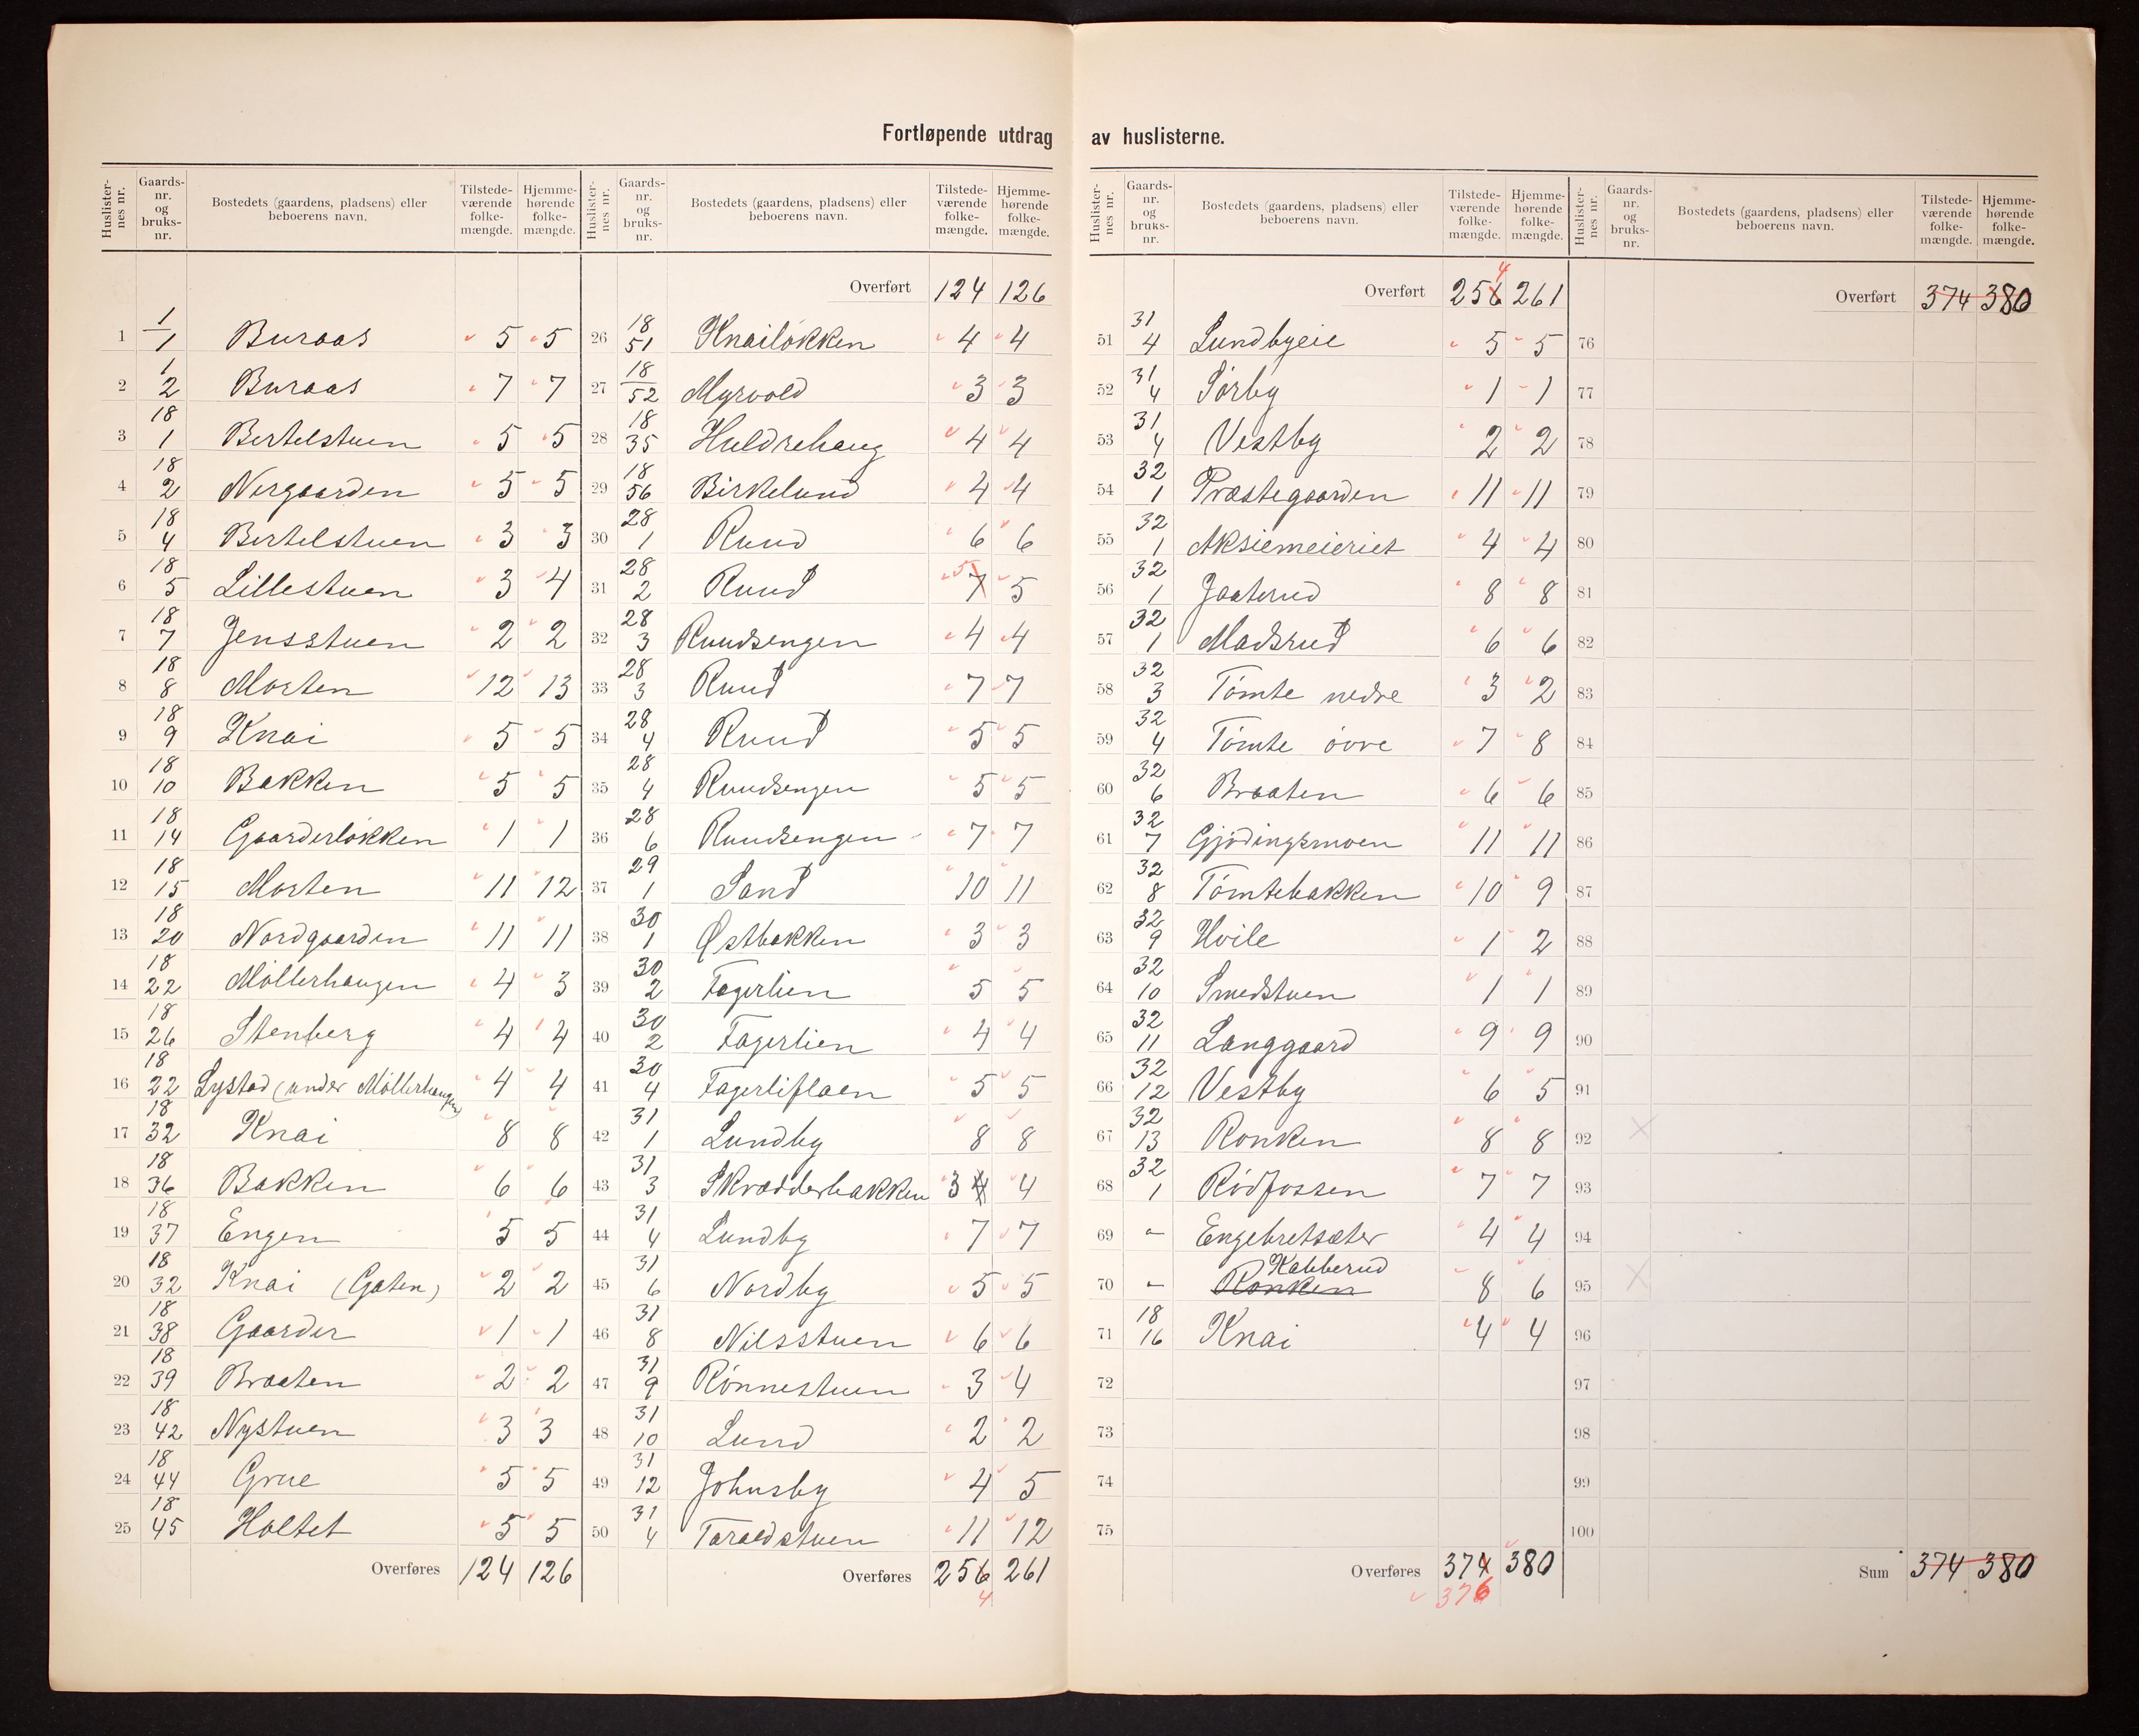 Fortløpende utdrag av huslisterne.
Huslister-nes nr. Gaards-nr. og bruks-nr. Bostedets (gaardens, pladsens) eller beboerens navn. Tilstede-værende folke-mængde. Hjemme-hørende folke-mængde.
1 1/1 Buraas 5 5
2 1/2 Buraas 7 7
3 18/1 Bertelstuen 5 5
4 18/2 Nergaarden 5 5
5 18/4 Bertelstuen 3 3
6 18/5 Lillestuen 3 4
7 18/7 Jensstuen 2 2
8 18/8 Morten 12 13
9 18/9 Knai 5 5
10 18/10 Bakken 5 5
11 18/14 Gaarderløkken 1 1
12 18/15 Morten 11 12
13 18/20 Nordgaarden 11 11
14 18/22 Möllerhaugen 4 3
15 18/26 Stenberg 4 4
16 18/22 Lystad (under Möllerhaugen) 4 4
17 18/32 Knai 8 8
18 18/36 Bakken 6 6
19 18/37 Engen 5 5
20 18/32 Knai (Gaten) 2 2
21 18/38 Gaarder 1 1
22 18/39 Braaten 2 2
23 18/42 Nystuen 3 3
24 18/44 Grue 5 5
25 18/45 Holtet 5 5
Overføres 124 126
Huslister-nes nr. Gaards-nr. og bruks-nr. Bostedets (gaardens, pladsens) eller beboerens navn. Tilstede-værende folke-mængde. Hjemme-hørende folke-mængde.
Overført 124 126
26 18/51 Knailøkken 4 4
27 18/52 Myrvold 3 3
28 18/35 Huldrehaug 4 4
29 18/56 Birkelund 4 4
30 28/1 Ruud 6 6
31 28/2 Ruud 7 5 5
32 28/3 Ruudsengen 4 4
33 28/3 Ruud 7 7
34 28/4 Ruud 5 5
35 28/4 Ruudsengen 5 5
36 28/6 Ruudsengen 7 7
37 29/1 Sand 10 11
38 30/1 Østbakken 3 3
39 30/2 Fagerlien 5 5
40 30/2 Fagerlien 4 4
41 30/4 Fagerliflaen 5 5
42 31/1 Lundby 8 8
43 31/3 Skrædderbakken 3 4 4
44 31/4 Lundby 7 7
45 31/6 Nordby 5 5
46 31/8 Nilsstuen 6 6
47 31/9 Rønnestuen 3 4
48 31/10 Lund 2 2
49 31/12 Johnsby 4 5
50 31/4 Taraldstuen 11 12
Overføres 256 261
4
Huslister-nes nr. Gaards-nr. og bruks-nr. Bostedets (gaardens, pladsens) eller beboerens navn. Tilstede-værende folke-mængde. Hjemme-hørende folke-mængde.
4
Overført 256 261
51 31/4 Lundbyeie 5 5
52 31/4 Sørby 1 1
53 31/4 Vestby 2 2
54 32/1 Præstegaarden 11 11
55 32/1 Aksiemeieriet 4 4
56 32/1 Jaaterud 8 8
57 32/1 Madsrud 6 6
58 32/3 Tömte nedre 3 2
59 32/4 Tömte övre 7 8
60 32/6 Braaten 6 6
61 32/7 Gjödingsmoen 11 11
62 32/8 Tömtebakken 10 9
63 32/9 Hvile 1 2
64 32/10 Smedstuen 1 1
65 32/11 Langgaard 9 9
66 32/12 Vestby 6 5
67 32/13 Ronken 8 8
68 32/1 Rödfossen 7 7
69 - Engebretsæter 4 4
70 - Ronken Kabberud 8 6
71 18/16 Knai 4 4
72
73
74
75
Overføres 374 380
376
Huslister-nes nr. Gaards-nr. og bruks-nr. Bostedets (gaardens, pladsens) eller beboerens navn. Tilstede-værende folke-mængde. Hjemme-hørende folke-mængde.
Overført 374 380
76
77
78
79
80
81
82
83
84
85
86
87
88
89
90
91
92
93
94
95
96
97
98
99
100
Sum 374 380